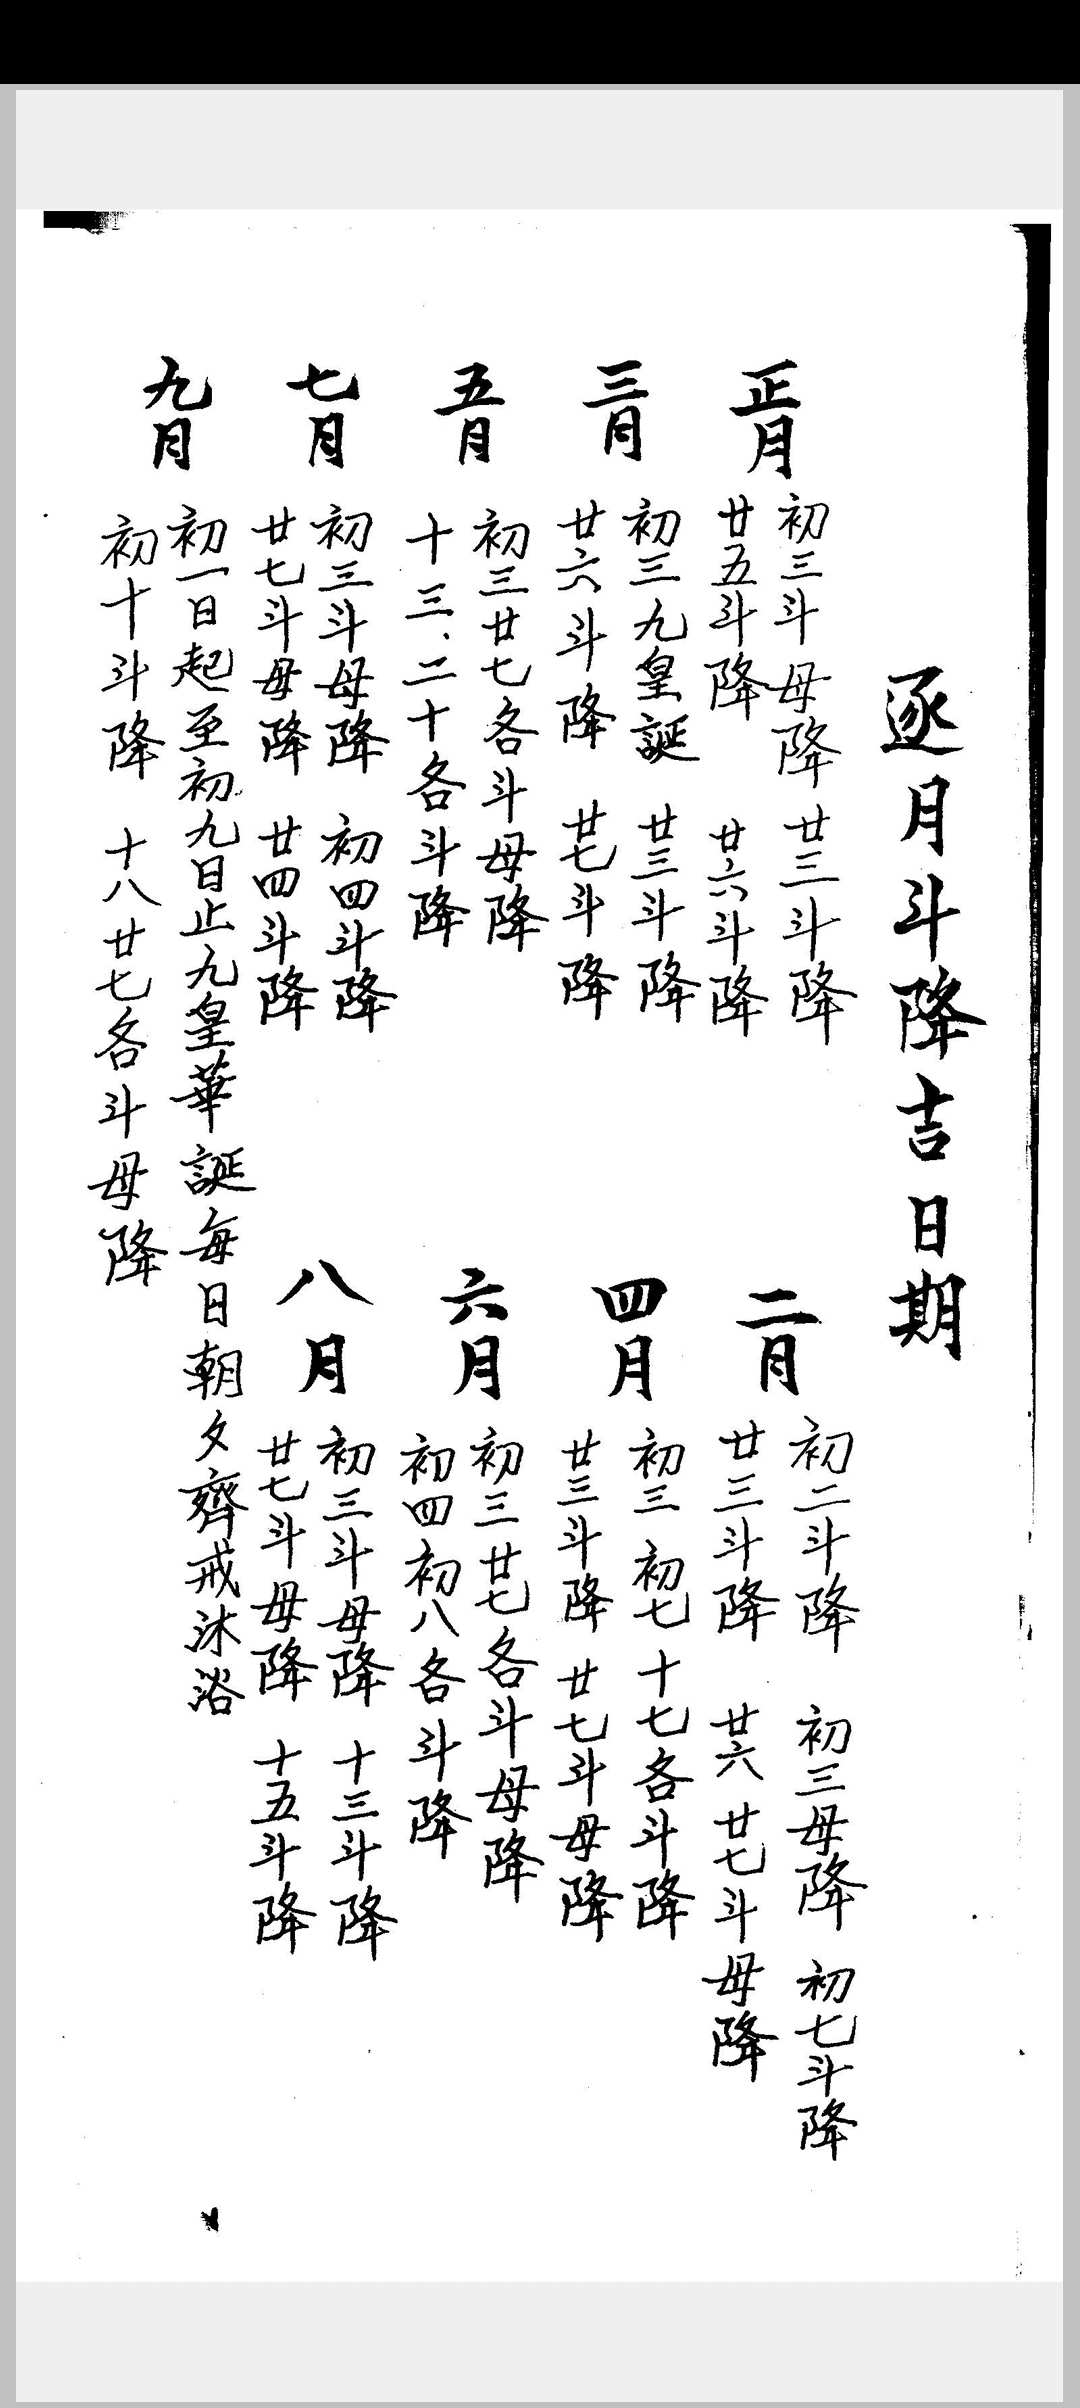 逐月斗降吉日期
正月
初三斗母降 廿三斗降
廿五斗降 廿六斗降
二月
初二斗降 初三母降 初七斗降
廿三斗降 廿六 廿七斗母降
三月
初三九皇誕 廿三斗降
廿六斗降 廿七斗降
四月
初三 初七 十七各斗降
廿三斗降 廿七斗母降
五月
初三廿七各斗母降
十三、二十各斗降
六月
初三廿七各斗母降
初四初八各斗降
七月
初三斗母降 初四斗降
廿七斗母降 廿四斗降
八月
初三斗母降 十三斗降
廿七斗母降 十五斗降
九月
初一日起至初九日止九皇華誕每日朝夕齊戒沐浴
初十斗降 十八廿七各斗母降